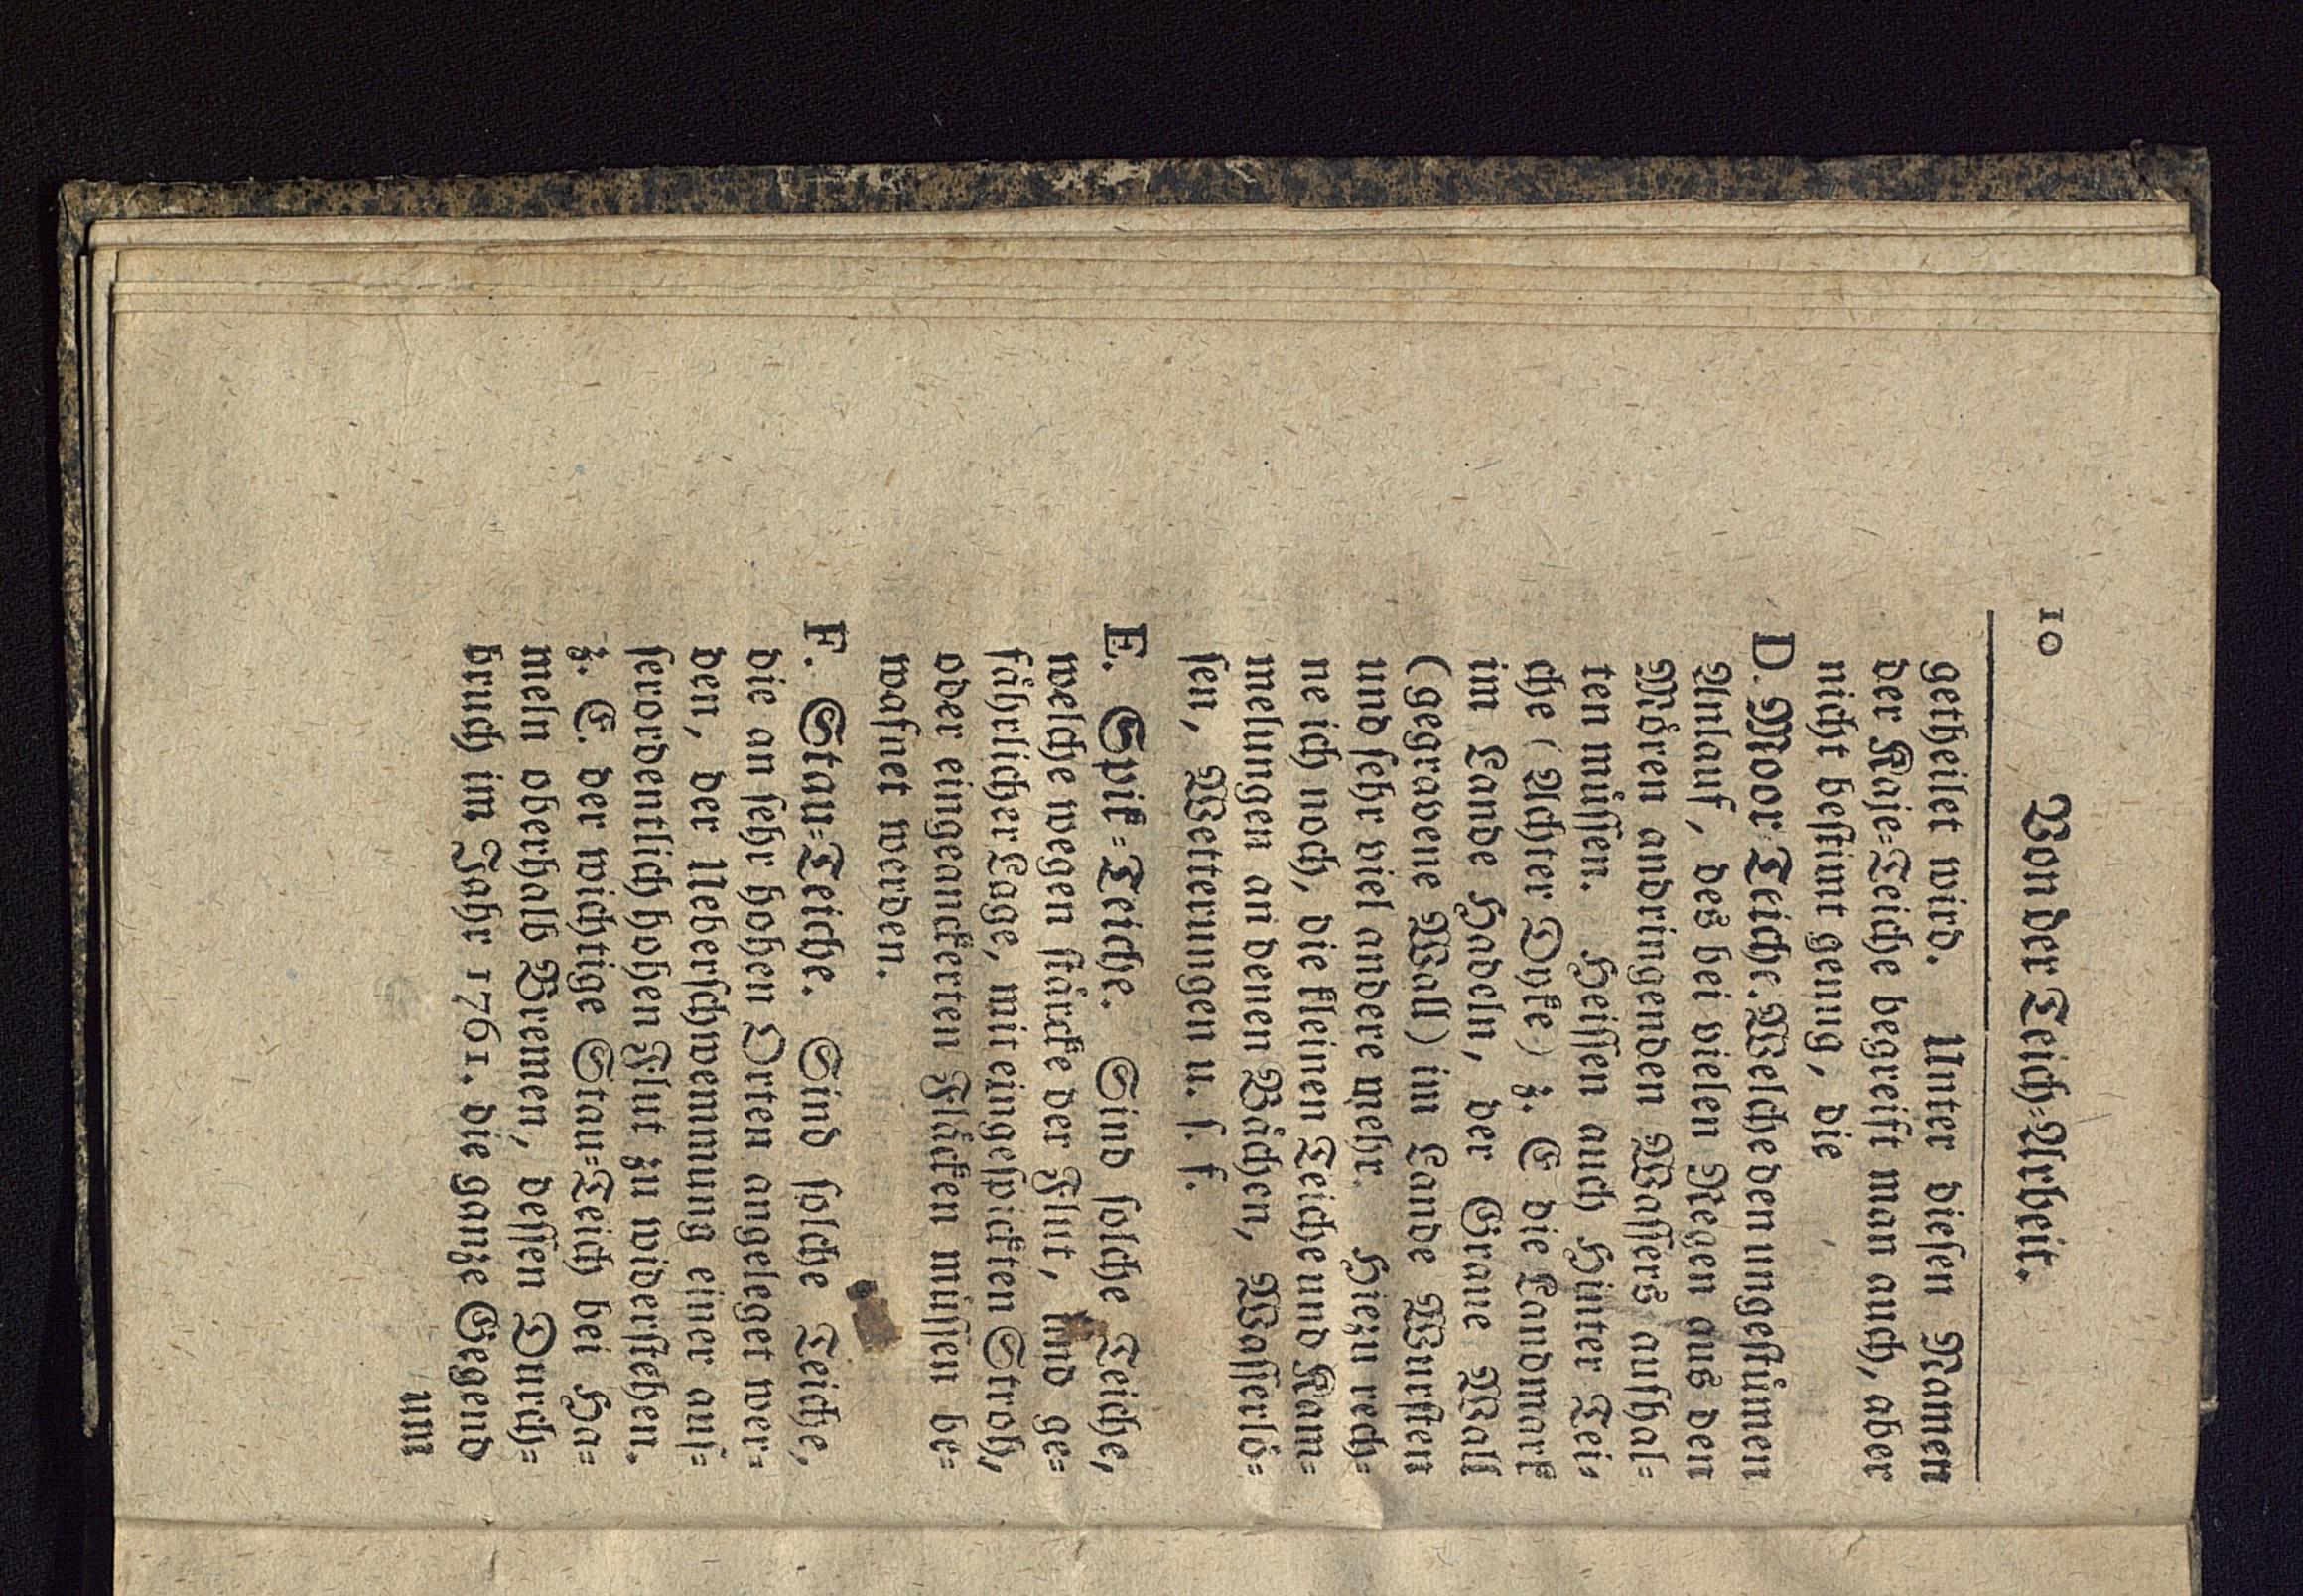 10 Von der Teich-Arbeit.
getheilet wird. Unter diesen Namen
der Kaje-Teiche begreift man auch, aber
nicht bestimt genug, die
D. Moor-Teiche. Welche den ungestümen
Anlauf, des bei vielen Regen aus den
Mören andringenden Wassers aufhal-
ten müssen. Heissen auch Hinter Tei-
che (Achter Dyke) z. E die Landmark
im Lande Hadeln, der Graue Wall
(gegravene Wall) im Lande Wursten
und sehr viel andere mehr. Hiezu rech-
ne ich noch, die kleinen Teiche und Kam-
melungen an denen Bächen, Wasserlö-
sen, Wetterungen u. s. f.
E. Spik-Teiche. Sind solche Teiche,
welche wegen stärcke der Flut, und ge-
fährlicher Lage, mit eingespickten Stroh,
oder eingeanckerten Flächen müssen be-
wafnet werden.
F. Stau-Teiche. Sind solche Teiche,
die an sehr hohen Orten angeleget wer-
den, der Ueberschwemmung einer aus-
serordentlich hohen Flut zu widerstehen.
z. E. der wichtige Stau-Teich bei Ha-
meln oberhalb Bremen, dessen Durch-
bruch im Jahr 1761. die ganze Gegend
um